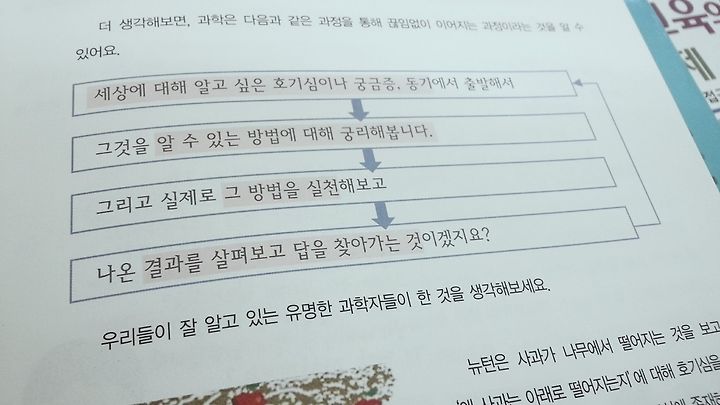 더 생각해보면, 과학은 다음과 같은 과정을 통해 끊임없이 이어지는 과정이라는 것을 알 수
있어요.
세상에 대해 알고 싶은 호기심이나 궁금증. 동기에서 출발해서
그것을 알 수 있는 방법에 대해 궁리해봅니다.
그리고 실제로 그 방법을 실천해보고
나온 결과를 살펴보고 답을 찾아가는 것이겠지요?
우리들이 잘 알고 있는 유명한 과학자들이 한 것을 생각해보세요.
뉴턴은 사과가 나무에서 떨어지는 것을 보고
사과는 아래로 떨어지는지'에 대해 호기심을